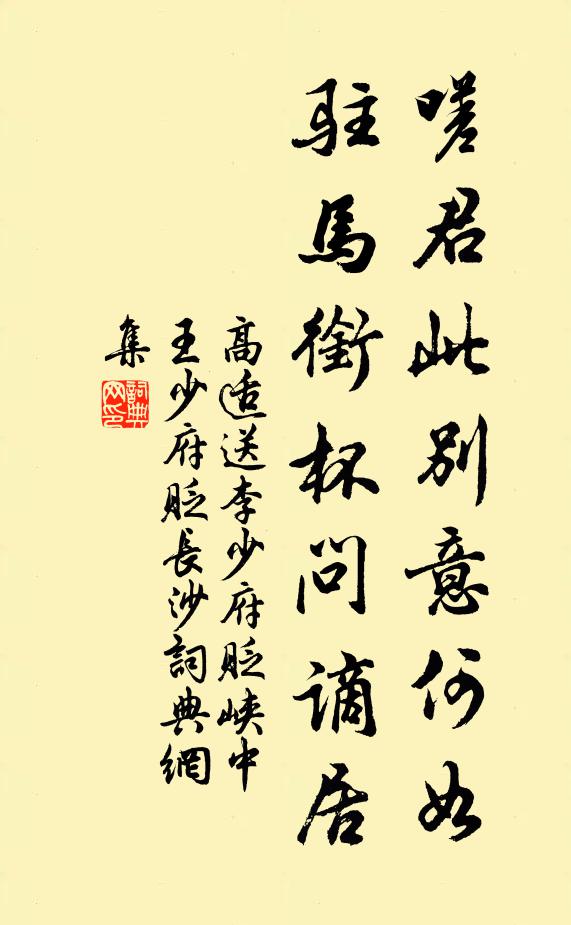 嗟君此別意何如
駐馬銜杯問謫居
高適送李少府貶峽中
王少府貶長沙詞典網
集
詞典
网印